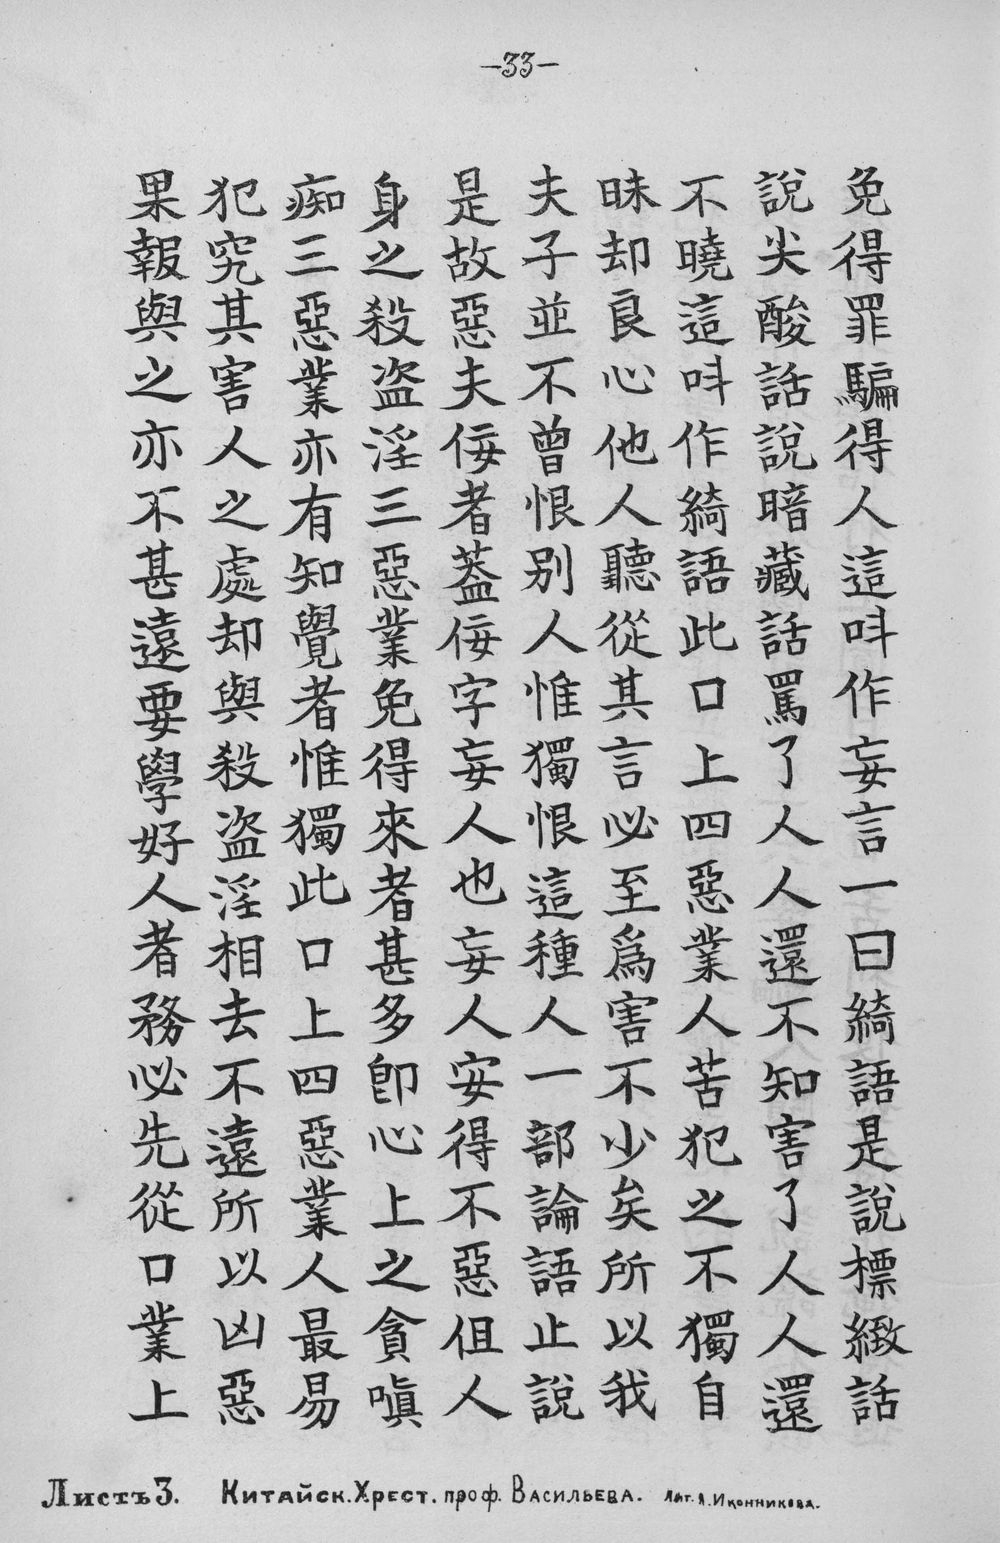 —33—
免得罪騙得人這呌作妄言一曰綺語是說標緻話
說尖酸話說暗藏話罵了人人還不知害了人人還
不曉這呌作綺語此口上四惡業人苦犯之不獨自
昧却良心他人聽從其言必至爲害不少矣所以我
夫子並不曾恨別人惟獨恨這種人一部論語止說
是故惡夫佞者葢佞字妄人也妄人安得不惡但人
身之殺盜淫三惡業免得來者甚多卽心上之貪嗔
痴三惡業亦有知覺者惟獨此口上四惡業人最易
犯究其害人之處却與殺盜淫相去不遠所以凶惡
果報與之亦不甚遠要學好人者務必先從口業上
Листъ 3. Китайск. Хрест. проф. Васильева. Лит. А. Иконникова.